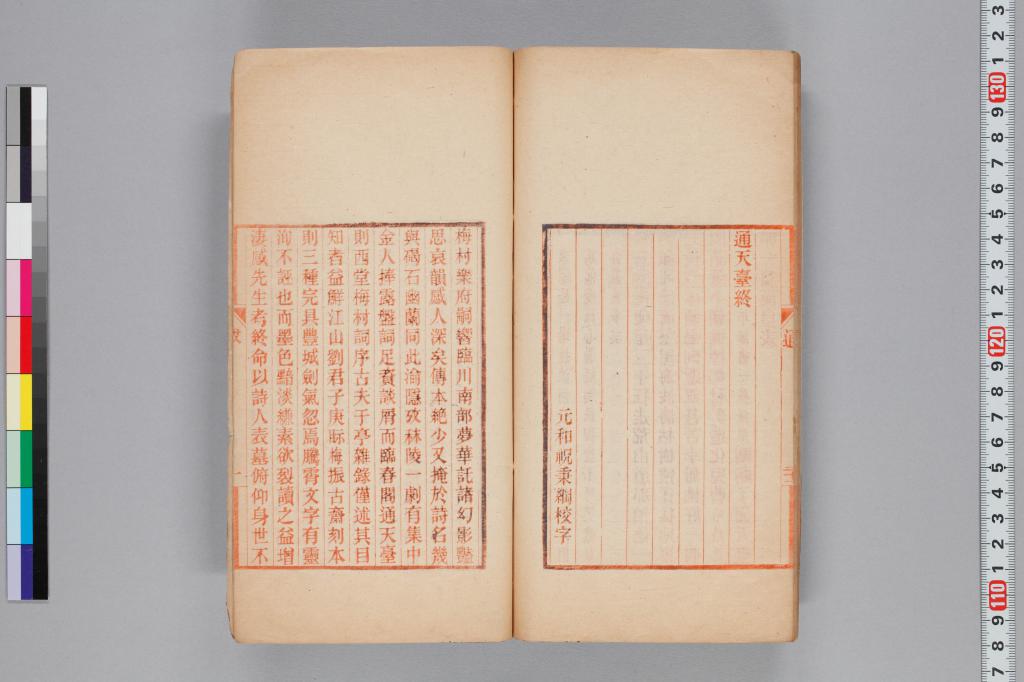 通天臺終
元和祝秉綱校字
通
三
梅村樂府嗣響臨川南部夢華託諸幻影豔
思哀韻感人深矣傳本絕少又掩於詩名幾
與碣石幽蘭同此淪隱攷秣陵一劇有集中
金人捧露盤詞足資談屑而臨春閣通天臺
則西堂梅村詞序古夫于亭雜錄僅述其目
知者益鮮江山劉君子庚眎梅振古齋刻本
則三種完具豐城劍氣忽焉騰霄文字有靈
洵不誣也而墨色黯淡縑素欲裂讀之益增
淒感先生考終命以詩人表墓俯仰身世不
跋
一
3 2 1 130 9 8 7 6 5 4 3 2 1 120 9 8 7 6 5 4 3 2 1 110 9 8 7